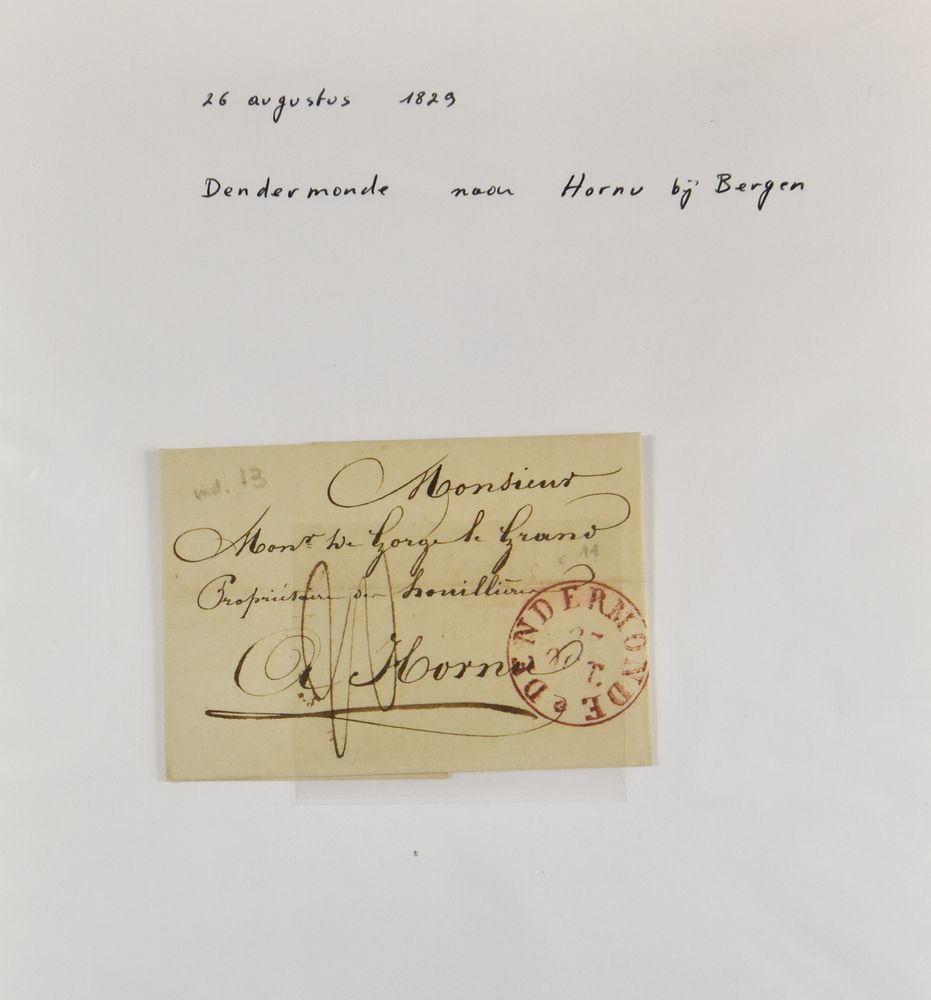 26 augustus 1829
Dendermonde naar Hornu bij Bergen
ind. 13
Monsieur
Monsr De Gorge le Grand
c 11
Propriétaire de houillières
A Hornu
DENDERMONDE